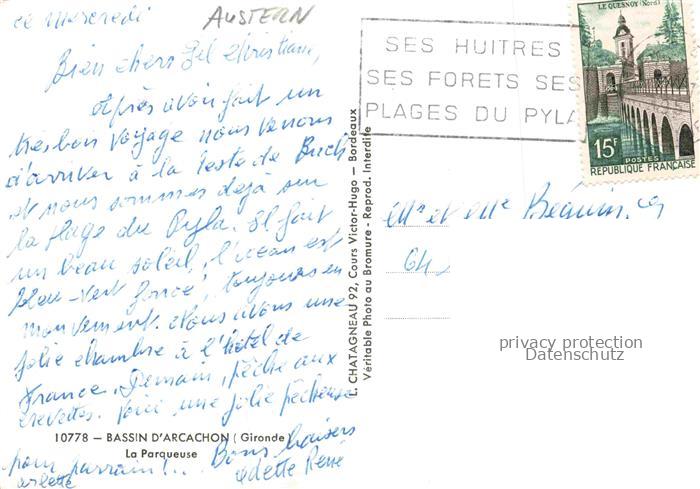 ce Mercredi
AUSTERN
Bien chers Gil Christiane,
Après avoir fait un
très bon voyage nous venons
d'arriver à la Teste de Buch
et nous sommes déjà sur
la plage du Pyla. Il fait
un beau soleil, l'océan est
bleu-vert foncé, toujours en
mouvement. Nous avons une
jolie chambre à l'hôtel de
France. Demain, pêche aux
crevettes. Voici une jolie pêcheuse
10778 — BASSIN D'ARCACHON (Gironde)
La Parqueuse
pour parrain!... Bons baisers
arlette Odette René
L. CHATAGNEAU 92, Cours Victor-Hugo — Bordeaux
Véritable Photo au Bromure - Reprod. Interdite
SES HUITRES
SES FORETS SES
PLAGES DU PYLA
LE QUESNOY (Nord)
15F
POSTES
REPUBLIQUE FRANÇAISE
Mr et Mme
64
privacy protection
Datenschutz